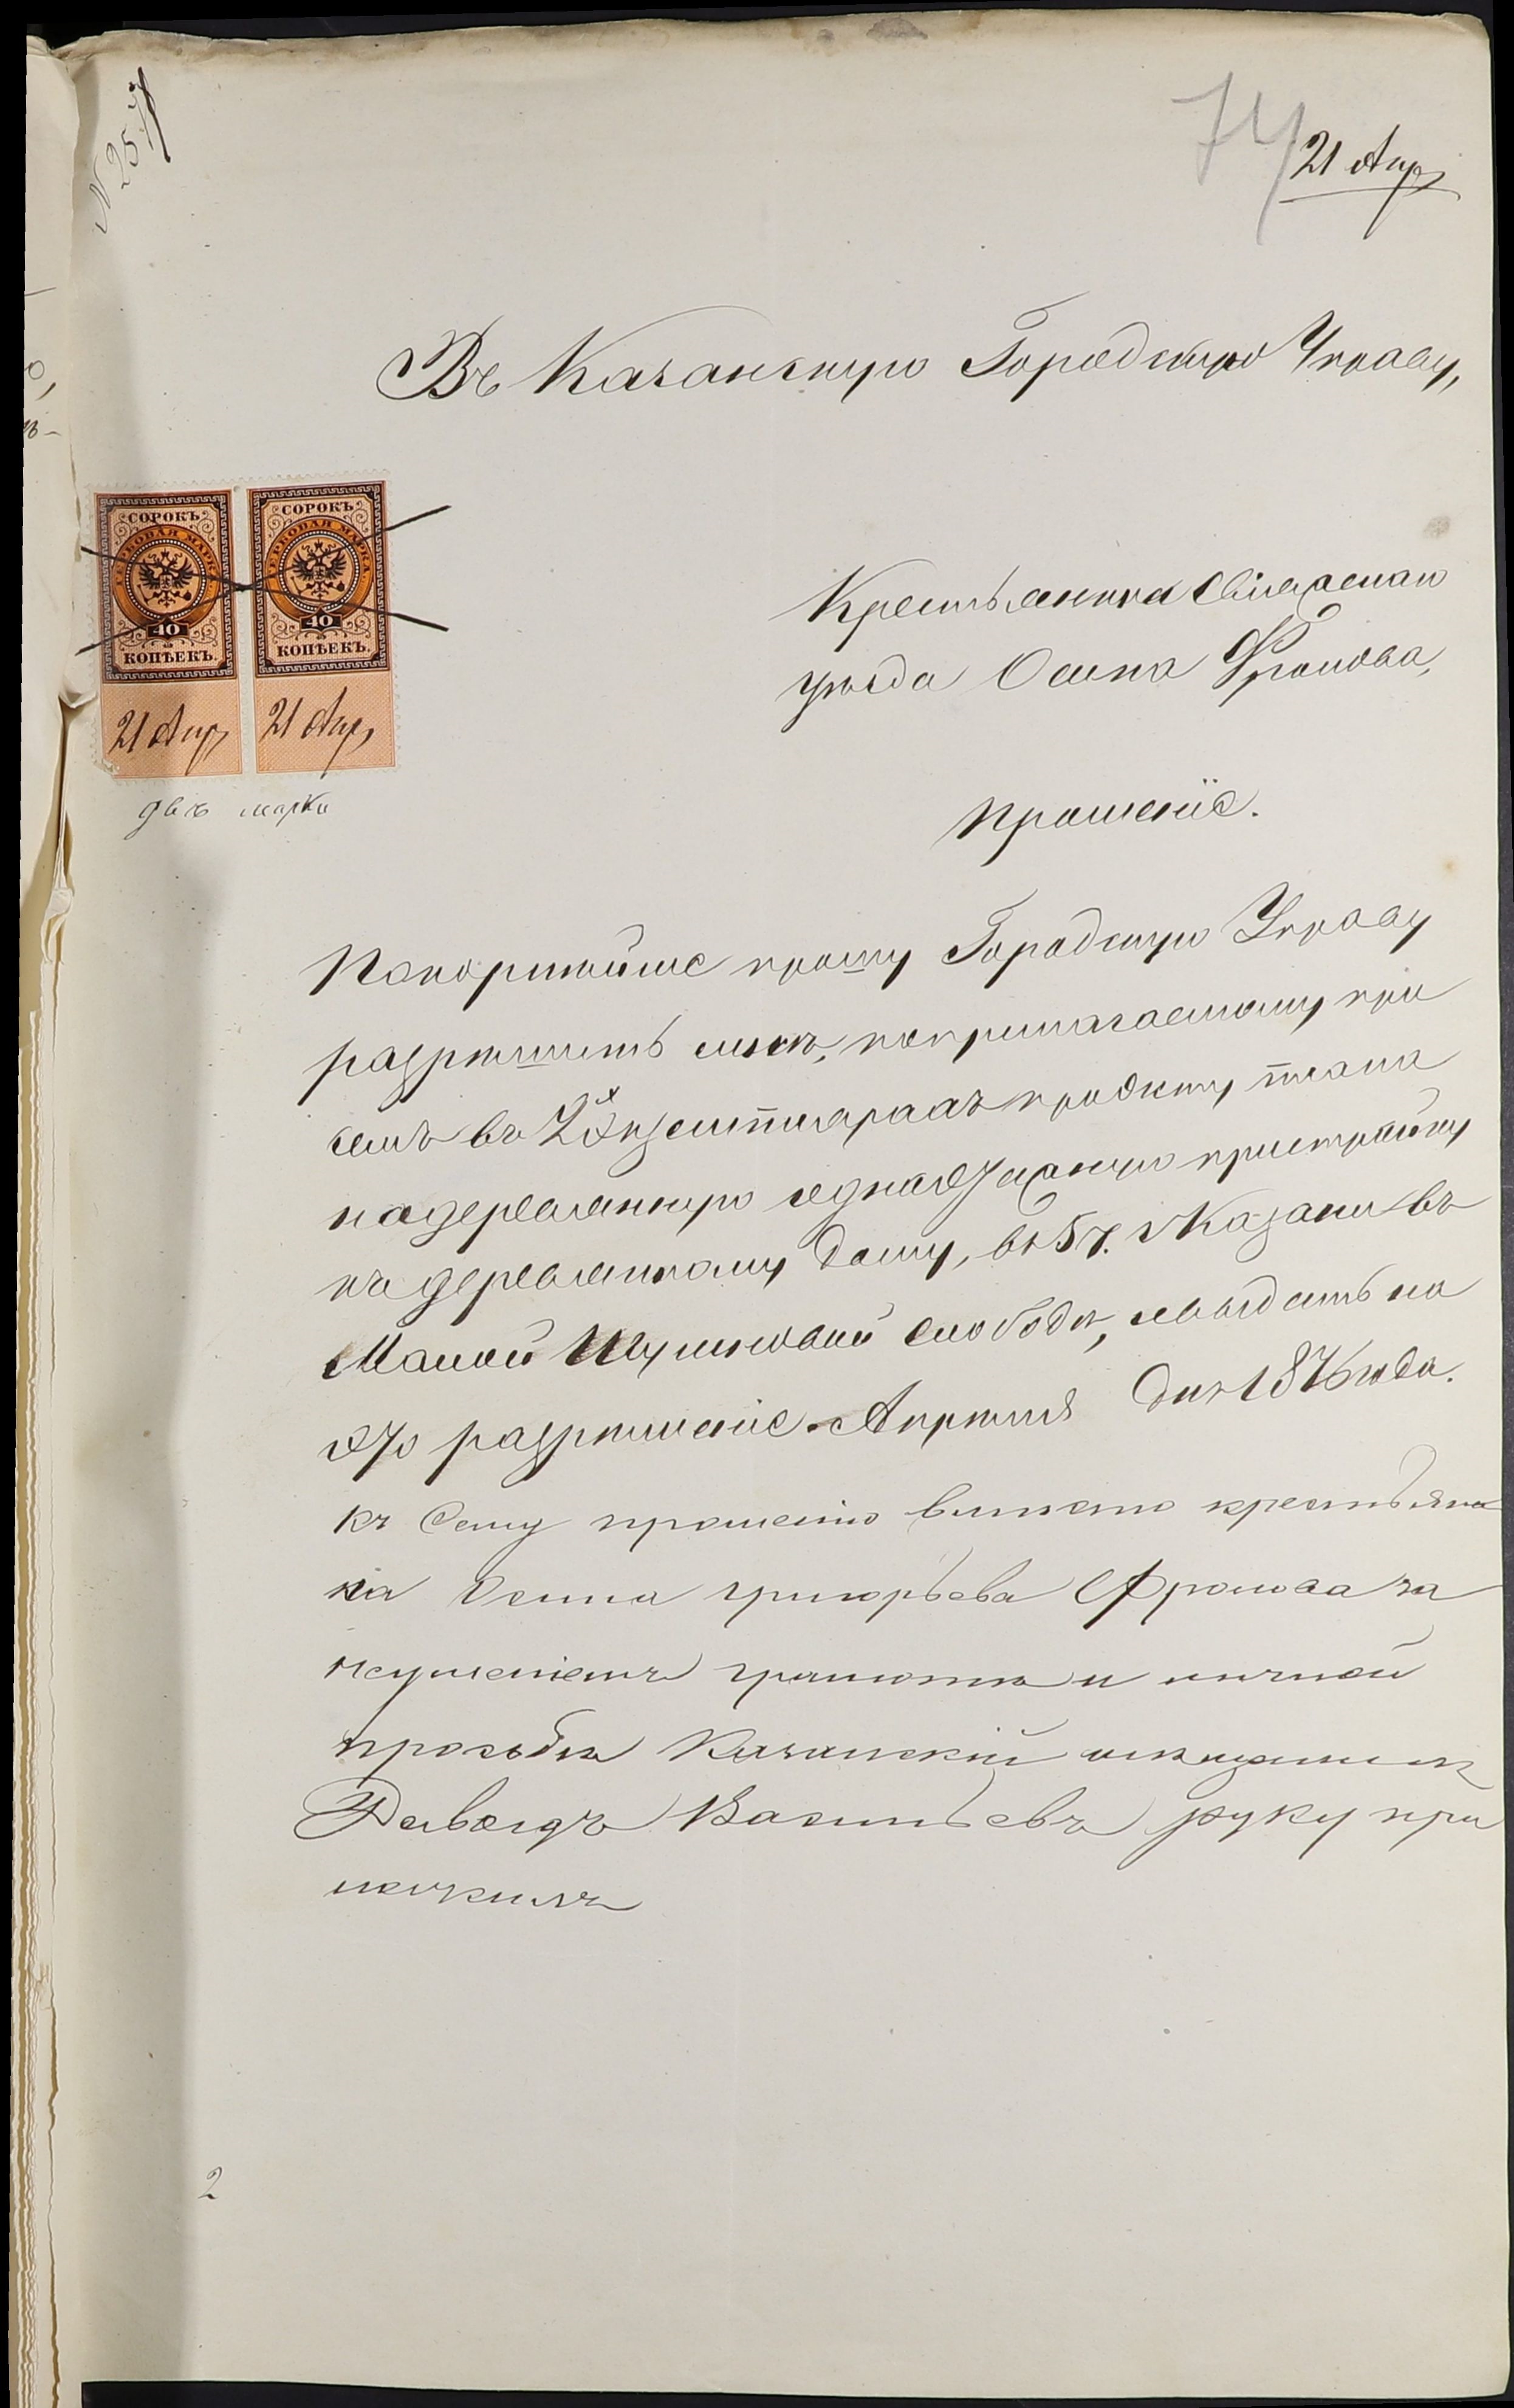 N 257
74
21 Апр
Въ Казанскую Городскую Управу,
СОРОКЪ
ГЕРБОВАЯ МАРКА
40
КОПѢЕКЪ.
СОРОКЪ
ГЕРБОВАЯ МАРКА
40
КОПѢЕКЪ.
21 Апр
21 Апр
двѣ марки
Крестьянина Свіяжскаго
уѣзда Осипа Фролова,
прошеніе.
Покорнѣйше прошу Городскую Управу
разрѣшить мнѣ, по прилагаемому при
семъ въ 2х экземплярахъ проэкту плана
на деревянную одноэтажную пристройку
къ деревянному дому, въ 5 ч. г. Казани въ
Малой Игумновой слободѣ, и выдать на
это разрѣшеніе. Апрѣля дня 1876 года.
къ сему прошенію вмѣсто крестьяни
на Осипа григорьева Фролова за
неуменіемъ грамоты и личной
прозьбы Казанскій мѣщанин
Давыдъ Васильевъ руку при
ложилъ
2